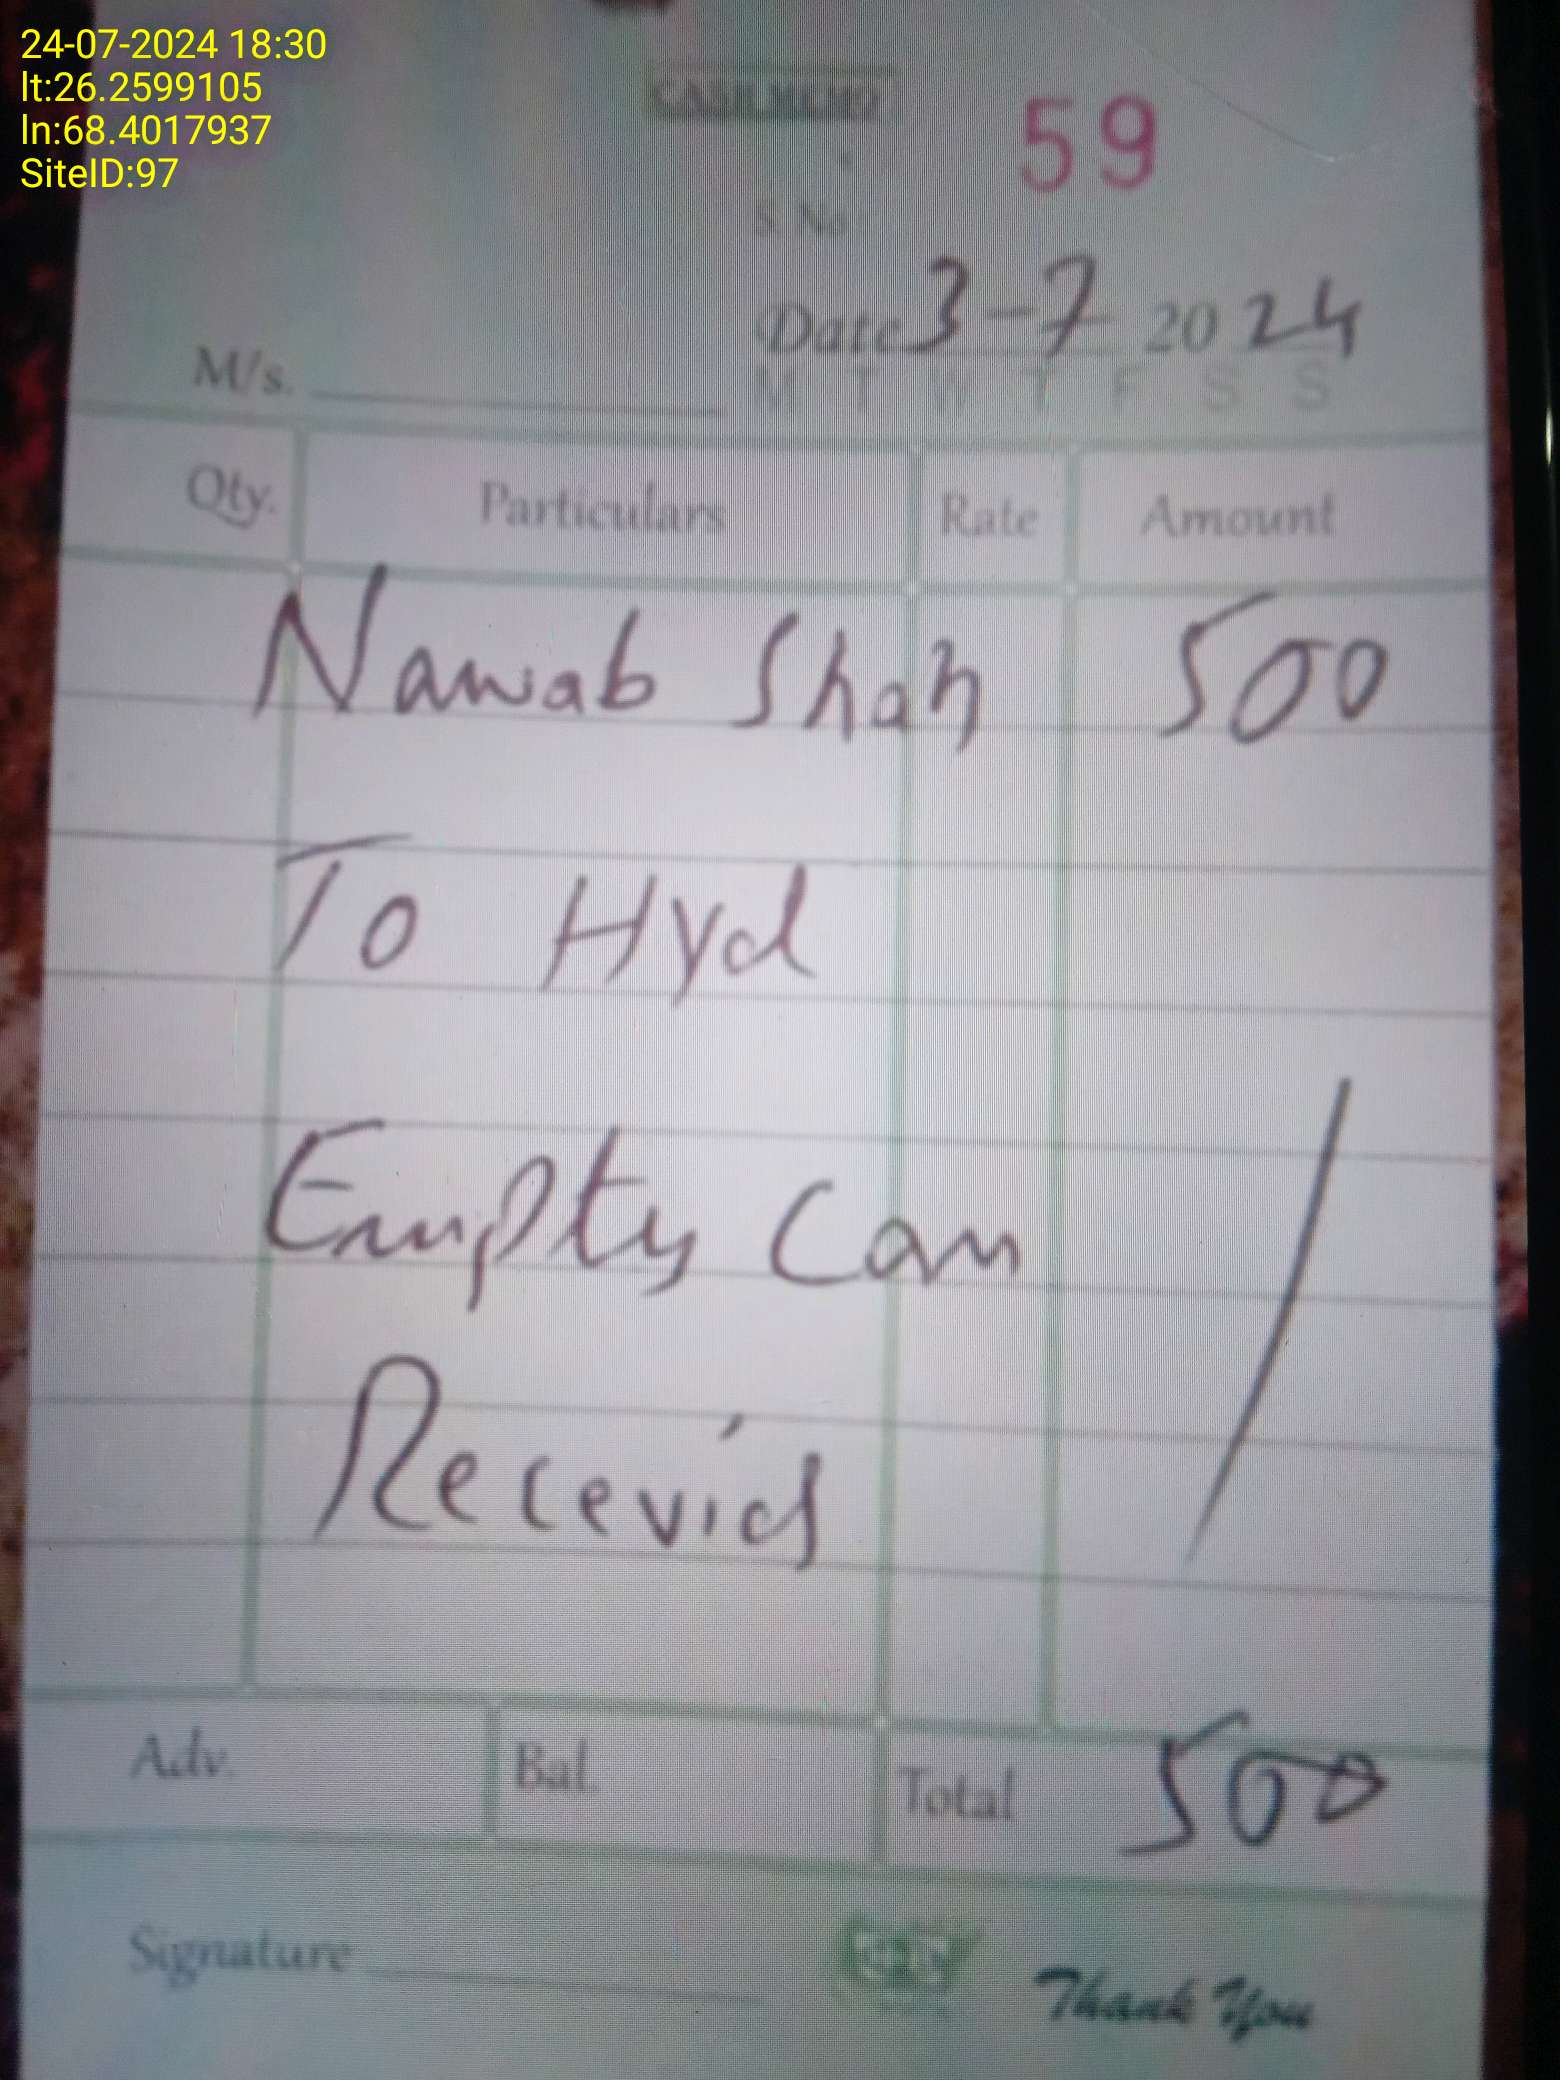 24-07-2024 18:30
lt:26.2599105
ln:68.4017937
SiteID:97
CASH MEMO
59
S.No
Date 3-7 2024
M/s.
M T W T F S S
Qty. Particulars Rate Amount
Nawab Shah 500
To Hyd
Empty Can
Recevid
Adv. Bal. Total 500
Signature
Thank You